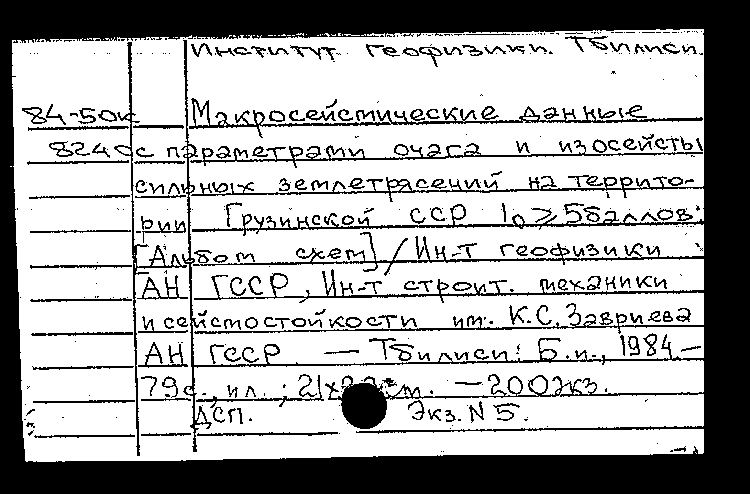 Институт геофизики. Тбилиси.
84-50к Макросейсмические данные
8240 с параметрами очага и изосейсты
сильных землетрясений на террито-
рии Грузинской ССР I₀ ⩾ 5 баллов:
[Альбом схем] / Ин-т геофизики
АН ГССР, Ин-т строит. механики
и сейсмостойкости им. К.С. Завриева
АН ГССР. — Тбилиси: Б.и., 1984 —
79с., ил.; см. — 200 экз.
ДСП. Экз. N 5.